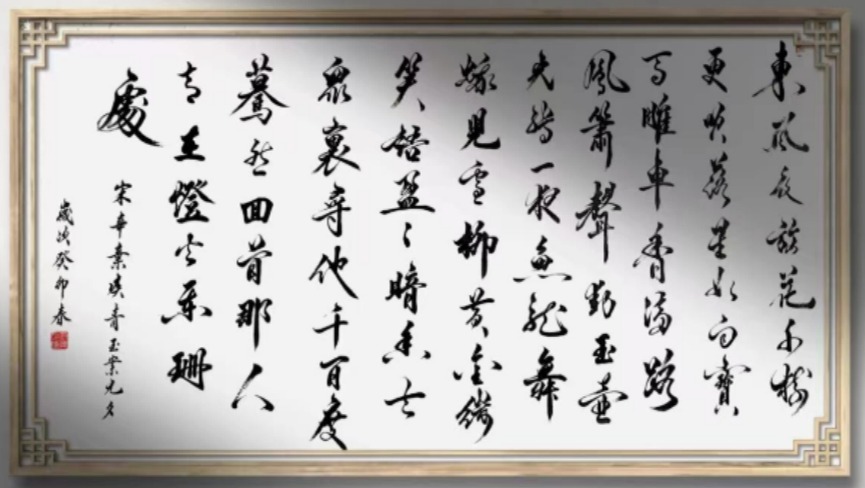 東風夜放花千樹
更吹落星如雨寶
馬雕車香滿路
鳳簫聲動玉壺
光轉一夜魚龍舞
蛾兒雪柳黃金縷
笑語盈々暗香去
眾裏尋他千百度
驀然回首那人
却在燈火闌珊
處
宋辛棄疾青玉案元夕
歲次癸卯春